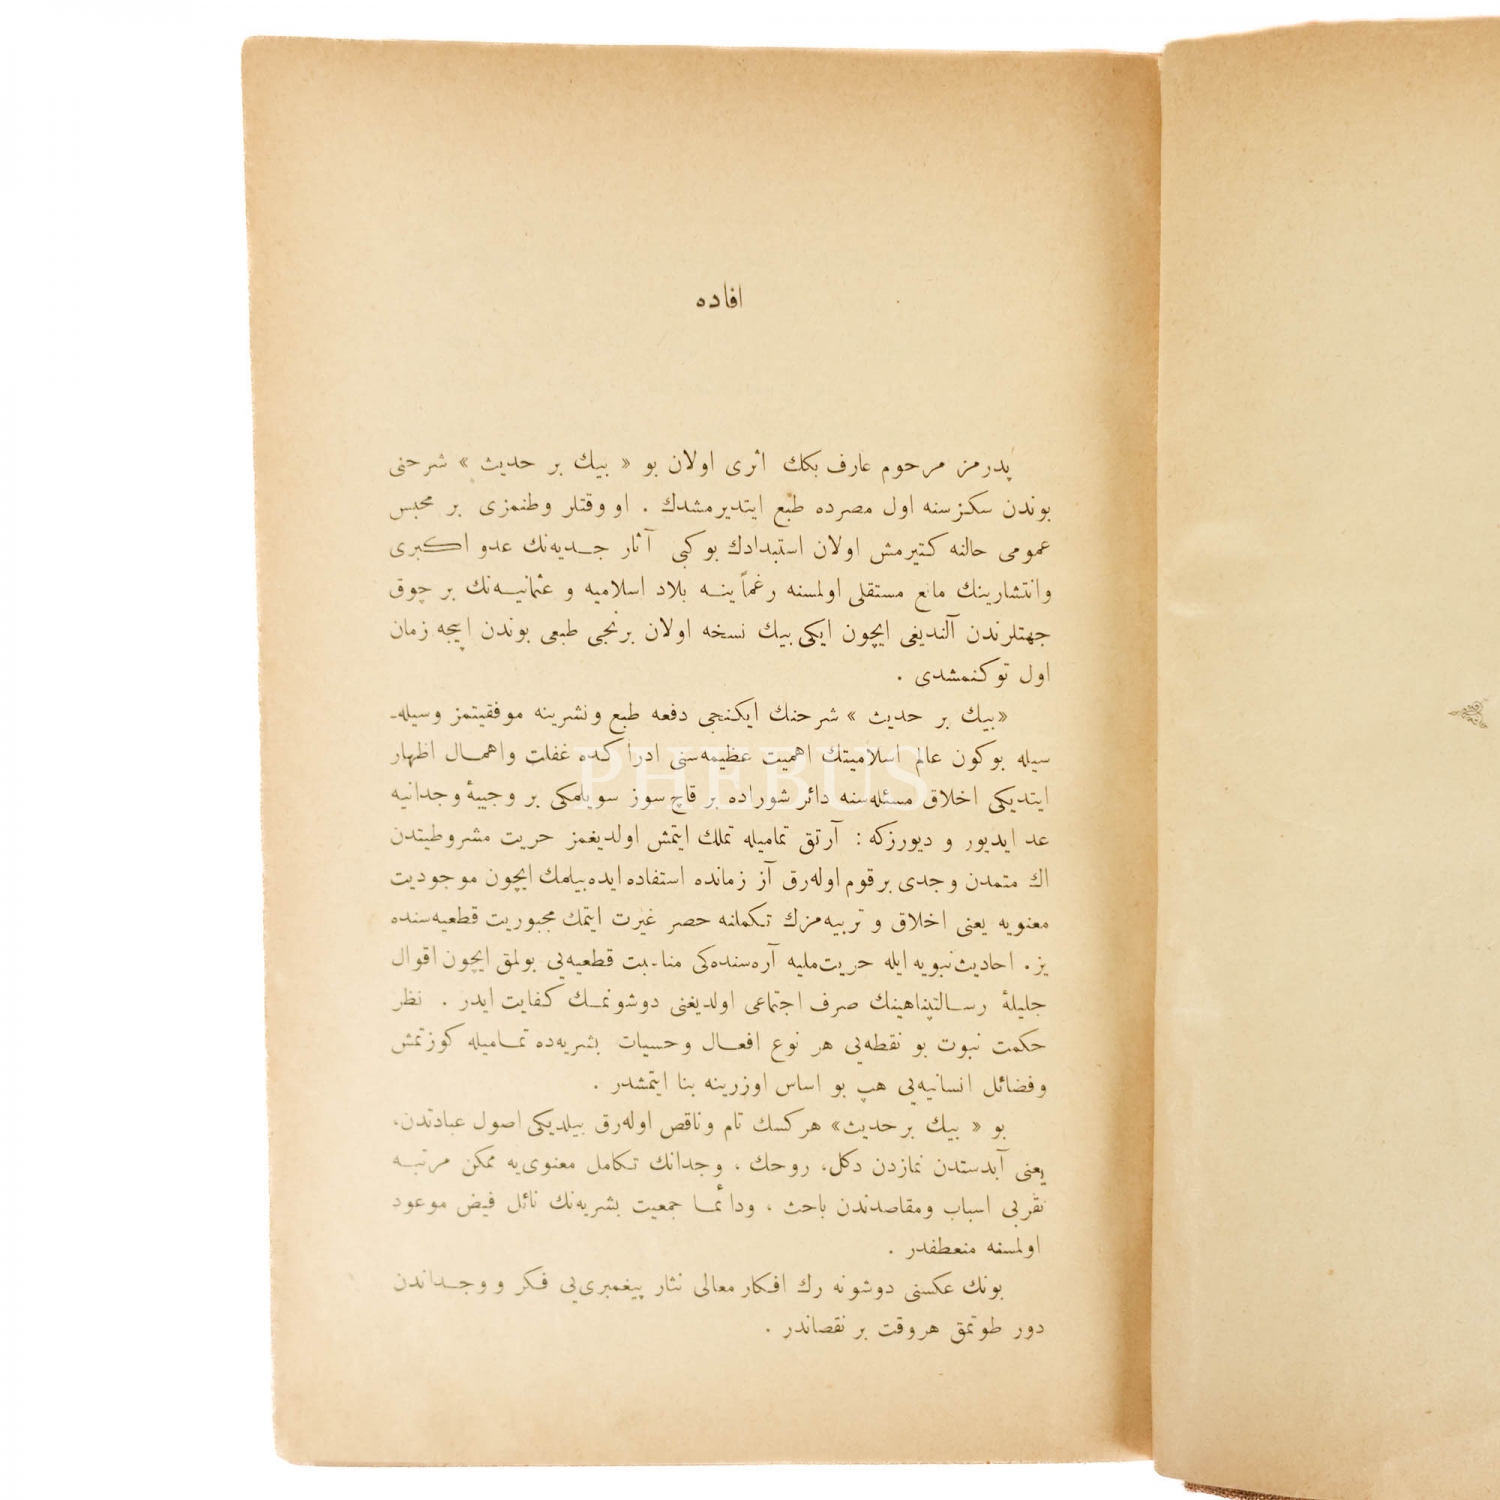 افاده
پدرمز مرحوم عارف بكك اثرى اولان بو « بيك بر حديث » شرحنى
بوندن سكز سنه اول مصرده طبع ايتديرمشدك . او وقتلر وطنمزى بر محبس
عمومى حالنه كتيرمش اولان استبدادك بو كبى آثار جديه‌نك عدو اكبرى
وانتشارينك مانع مستقلى اولمسنه رغماً ينه بلاد اسلاميه و عثمانيه‌نك بر چوق
جهتلرندن آلنديغى ايچون ايكى بيك نسخه اولان برنجى طبعى بوندن ايجه زمان
اول توكنمشدى .
« بيك بر حديث » شرحنك ايكنجى دفعه طبع ونشرينه موفقيتمز وسيله-
سيله بوكون عالم اسلاميتك اهميت عظيمه‌سنى ادراكده غفلت واهمال اظهار
ايتديكى اخلاق مسئله‌سنه دائر شوراده بر قاچ سوز سويلمكى بر وجيبۀ وجدانيه
عد ايديور و ديورزكه : آرتق تماميله تملك ايتمش اولديغمز حريت مشروطيتدن
اك متمدن وجدى بر قوم اوله‌رق آز زمانده استفاده ايده‌بيلمك ايچون موجوديت
معنويه يعنى اخلاق و تربيه‌مزك تكملنه حصر غيرت ايتمك مجبوريت قطعيه‌سنده
يز . احاديث نبويه ايله حريت مليه آره‌سنده‌كى مناسبت قطعيه‌يى بولمق ايچون اقوال
جليلۀ رسالتپناهينك صرف اجتماعى اولديغنى دوشونمك كفايت ايدر . نظر
حكمت نبوت بو نقطه‌يى هر نوع افعال وحسيات بشريه‌ده تماميله كوزتمش
وفضائل انسانيه‌يى هپ بو اساس اوزرينه بنا ايتمشدر .
بو « بيك بر حديث » هركسك تام وناقص اوله‌رق بيلديكى اصول عبادتدن،
يعنى آبدستدن نمازدن دكل، روحك ، وجدانك تكامل معنوى‌يه ممكن مرتبه
تقربى اسباب ومقاصدندن باحث ، ودائما جمعيت بشريه‌نك نائل فيض موعود
اولمسنه منعطفدر .
بونك عكسنى دوشونه رك افكار معالى نثار پيغمبرى‌يى فكر و وجداندن
دور طوتمق هر وقت بر نقصاندر .
PHEBUS